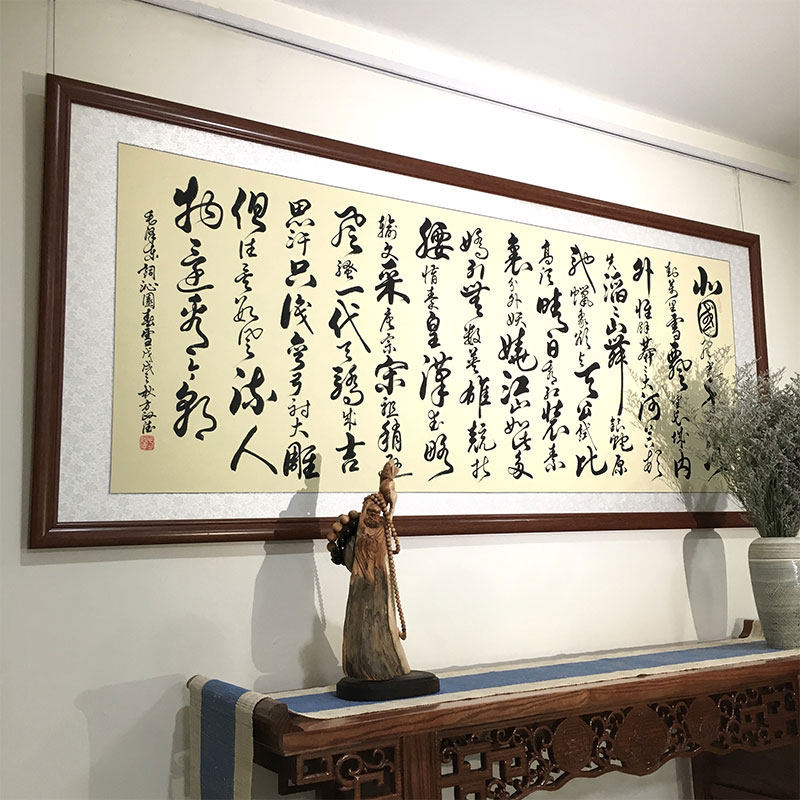 北國風光千里
封萬里雪飄望長城內
外惟餘莽莽大河上下頓
失滔滔山舞銀蛇原
馳蠟象欲與天公試比
高須晴日看紅裝素
裹分外妖嬈江山如此多
嬌引無數英雄競折
腰惜秦皇漢武略
輸文采唐宗宋祖稍遜
風騷一代天驕成吉
思汗只識彎弓射大雕
俱往矣數風流人
物還看今朝
毛澤東詞沁園春雪戊戌之秋方政